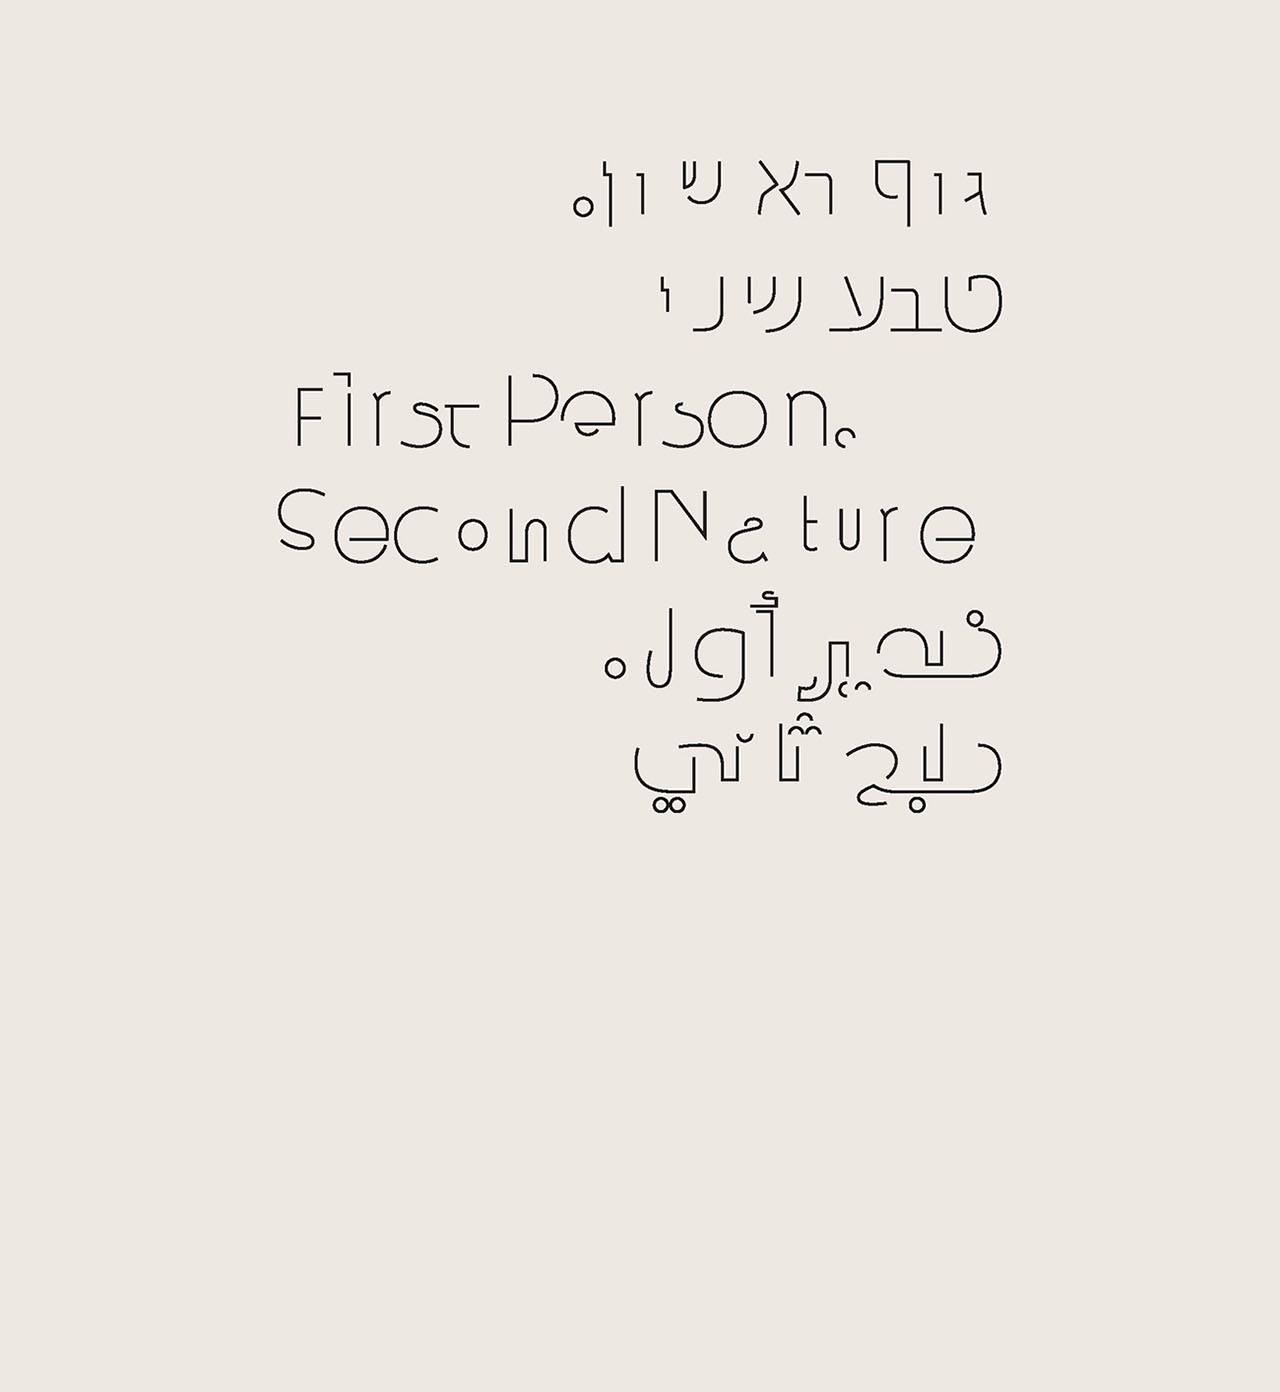 גוף ראשון.
טבע שני
First Person.
Second Nature
ضمير أول.
طبع ثاني